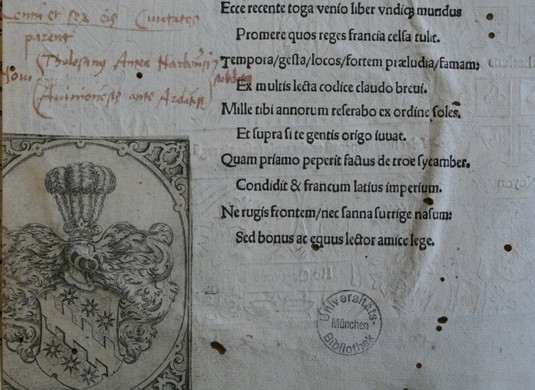 Centu et sex eis Ciuitates
parent
Ecce recente toga venio liber vndiq; mundus
Promere quos reges francia celsa tulit.
Tempora/gesta/locos/fortem præludia/famam:
Ex multis lecta codice claudo breui.
Mille tibi annorum reserabo ex ordine soles.
Et supra si te gentis origo iuuat.
Quam príamo peperit factus de troe sycamber.
Condidit & francum latius imperium.
Ne rugis frontem/nec sanna surrige nasum:
Sed bonus ac equus lector amice lege.
Universitäts-
München
Bibliothek